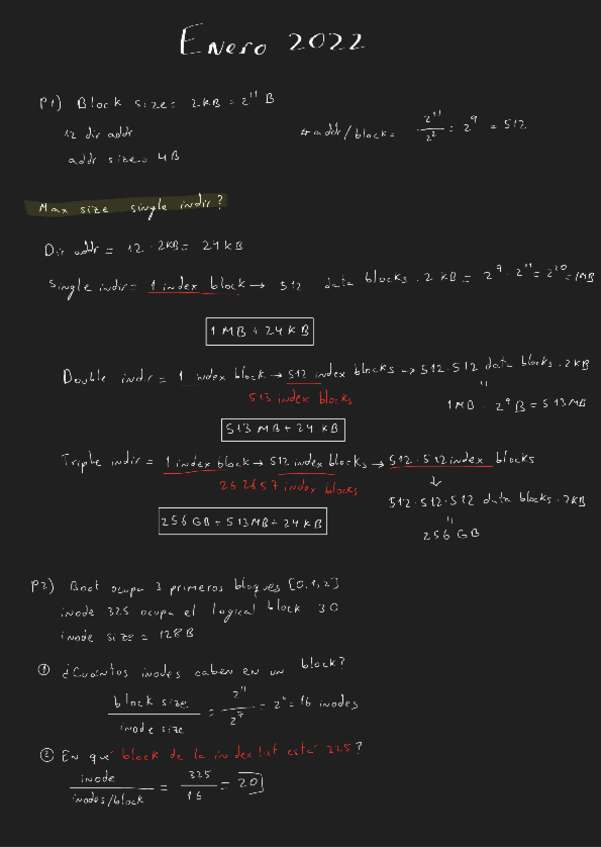 Enero 2022
P1) Block size = 2KB = 2^11 B
12 dir addr
#addr/block = 2^11 / 2^2 = 2^9 = 512
addr size = 4B
Max size single indir?
Dir addr = 12 · 2KB = 24 KB
Single indir = 1 index block → 512 data blocks · 2 KB = 2^9 · 2^11 = 2^20 = 1MB
1 MB + 24 KB
Double indir = 1 index block → 512 index blocks → 512·512 data blocks · 2KB
513 index blocks
"
1MB · 2^9 B = 513MB
513 MB + 24 KB
Triple indir = 1 index block → 512 index blocks → 512·512 index blocks
262657 index blocks
↓
512·512·512 data blocks · 2KB
"
256 GB
256 GB + 513MB + 24 KB
P2) Boot ocupa 3 primeros bloques [0,1,2]
inode 325 ocupa el logical block 30
inode size = 128B
① ¿Cuántos inodes caben en un block?
block size / inode size = 2^11 / 2^7 = 2^4 = 16 inodes
② En qué block de la index list está 325?
inode / inodes/block = 325 / 16 = 20